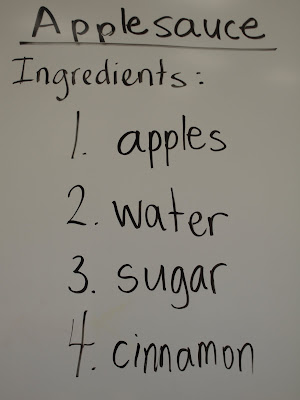 Applesauce
Ingredients:
1. apples
2. water
3. sugar
4. cinnamon